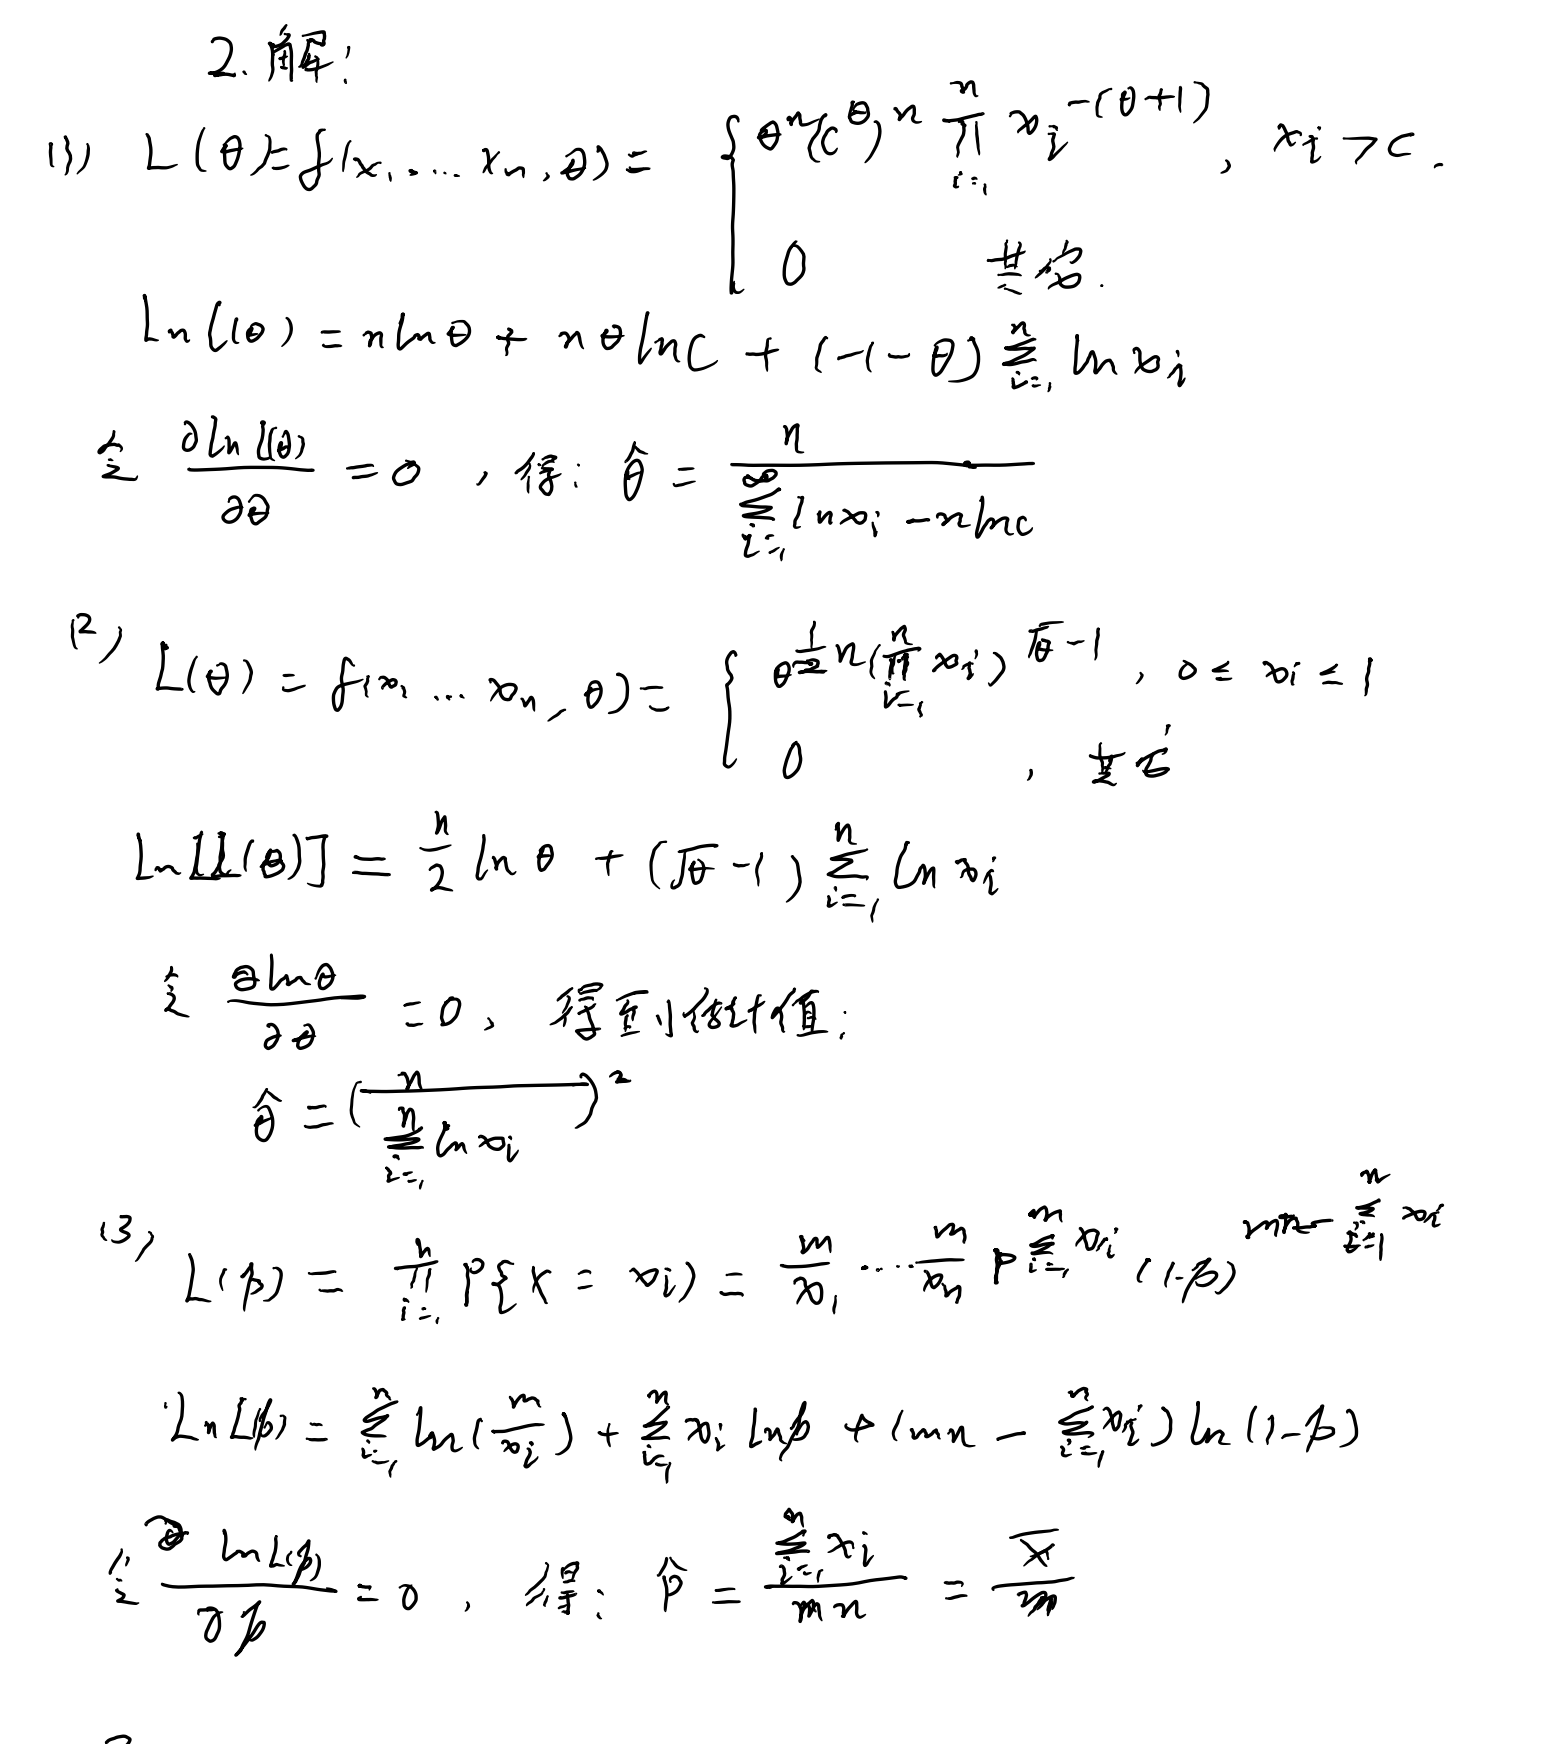 2. 解:
(1) L(θ)=f(x₁,…xₙ,θ) = { θⁿ(c^θ)ⁿ ∏_{i=1}^{n} x_i^{-(θ+1)}, x_i > c.
0 其它.
Ln L(θ) = n ln θ + nθ ln C + (-1-θ) ∑_{i=1}^{n} ln x_i
令 ∂ln L(θ)/∂θ = 0, 得: θ̂ = n/(∑_{i=1}^{∞} ln x_i - n ln c)
(2) L(θ) = f(x₁…xₙ,θ) = { θ^{\frac{1}{2}n}(∏_{i=1}^{n} x_i)^{√θ-1}, 0 ≤ x_i ≤ 1
0, 其它
Ln[L(θ)] = n/2 ln θ + (√θ-1) ∑_{i=1}^{n} ln x_i
令 ∂lnθ/∂θ = 0, 得到估计值:
θ̂ = (n/(∑_{i=1}^{n} ln x_i))²
(3) L(p) = ∏_{i=1}^{n} P{X = x_i) = m/x₁ ⋯ m/xₙ p^{∑_{i=1}^{m} x_i} (1-p)^{mn-∑_{i=1}^{n} x_i}
Ln L(p) = ∑_{i=1}^{n} ln(m/x_i) + ∑_{i=1}^{n} x_i ln p + (mn - ∑_{i=1}^{n} x_i) ln(1-p)
令 ∂ ln L(p)/∂p = 0, 得: p̂ = (∑_{i=1}^{n} x_i)/(mn) = x̄/m